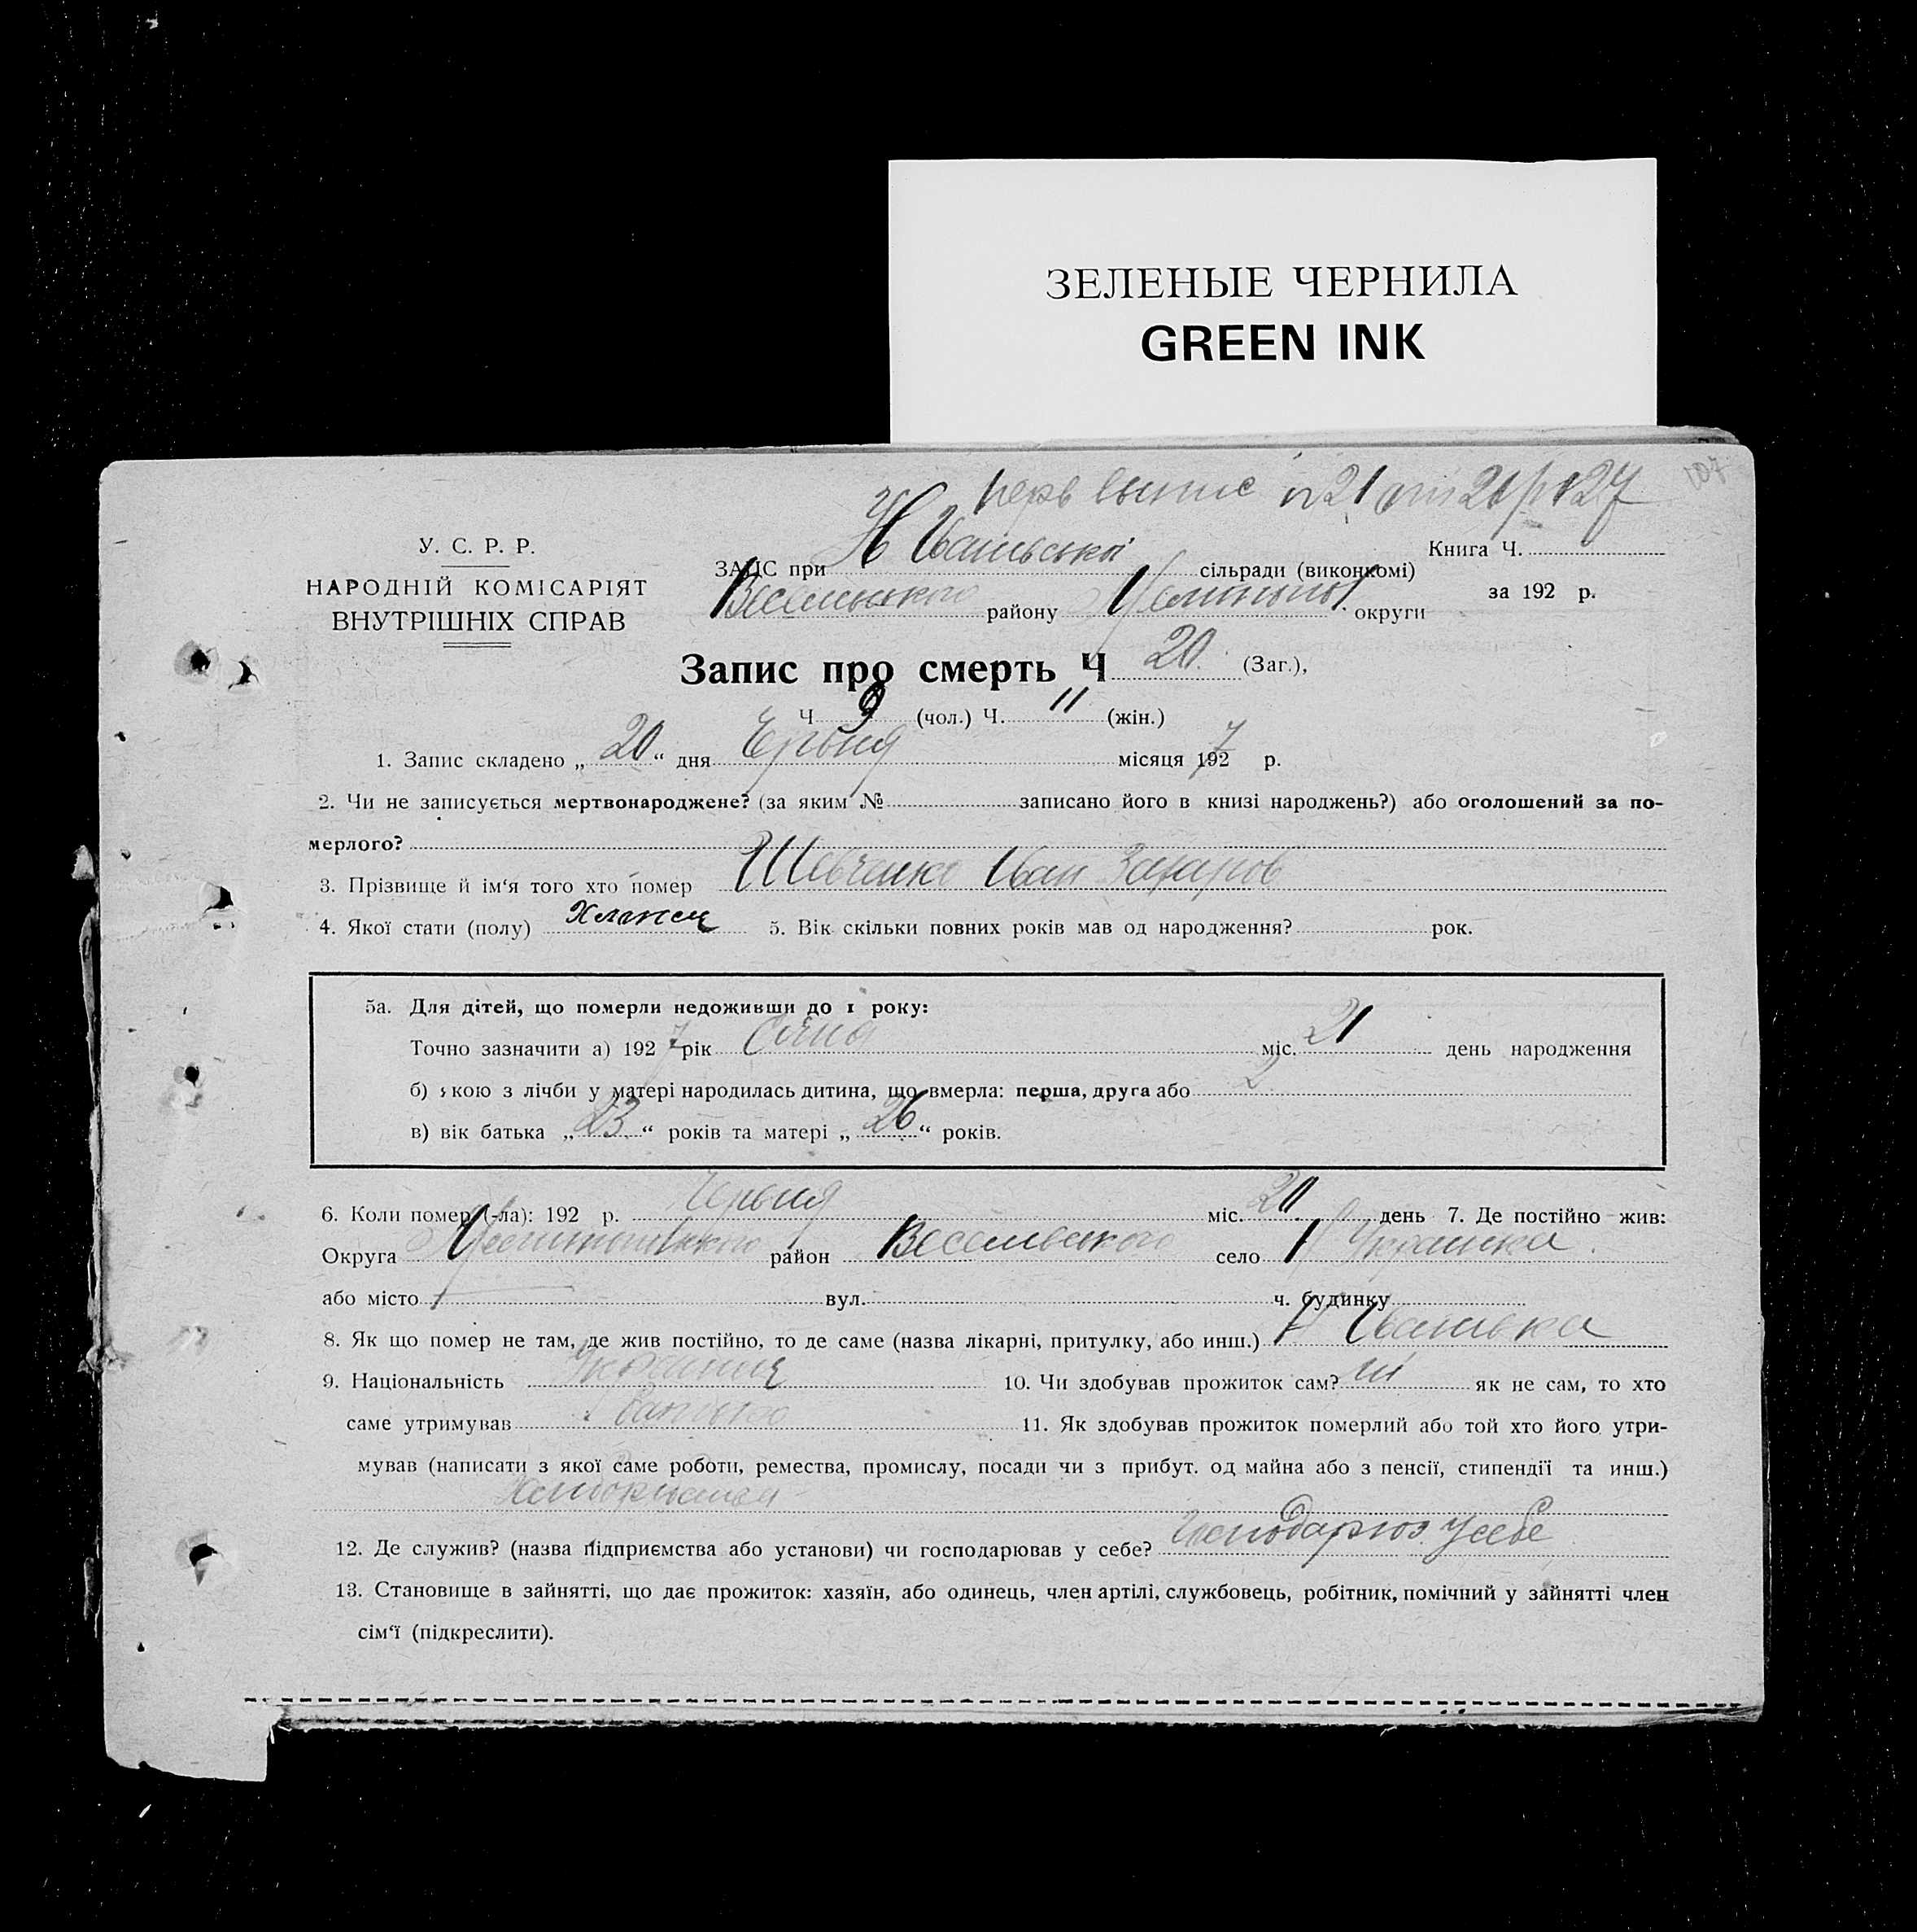 ЗЕЛЕНЫЕ ЧЕРНИЛА
GREEN INK
107
У. С. Р. Р.
НАРОДНІЙ КОМІСАРІЯТ
ВНУТРІШНІХ СПРАВ
ЗАГС при Н Іванівської сільради (виконкомі)
району округи
Книга Ч.
за 192 р.
Запис про смерть Ч 20 (Заг.),
Ч 9 (чол.) Ч. 11 (жін.)
1. Запис складено „ 20 “ дня місяця 1927 р.
2. Чи не записується мертвонароджене? (за яким № записано його в книзі народжень?) або оголошений за по-
мерлого?
3. Прізвище й ім‘я того хто помер Шевченко Іван Захаров
4. Якої стати (полу) Хлопець 5. Вік скільки повних років мав од народження? рок.
5а. Для дітей, що померли недоживши до 1 року:
Точно зазначити а) 1927 рік Січня міс. 21 день народження
б) якою з лічби у матері народилась дитина, що вмерла: перша, друга або 2
в) вік батька „ 23 “ років та матері „ 26 “ років.
6. Коли помер (-ла): 192 р. Червня міс. 20 день 7. Де постійно жив:
Округа район село Українка
або місто вул. ч. будинку
8. Як що помер не там, де жив постійно, то де саме (назва лікарні, притулку, або инш.) Н Іванівка
9. Національність Українець 10. Чи здобував прожиток сам? ні як не сам, то хто
саме утримував батько 11. Як здобував прожиток померлий або той хто його утри-
мував (написати з якої саме роботи, ремества, промислу, посади чи з прибут. од майна або з пенсії, стипендії та инш.)
12. Де служив? (назва підприємства або установи) чи господарював у себе? Господарюв у себе
13. Становище в зайнятті, що дає прожиток: хазяїн, або одинець, член артілі, службовець, робітник, помічний у зайнятті член
сім‘ї (підкреслити).